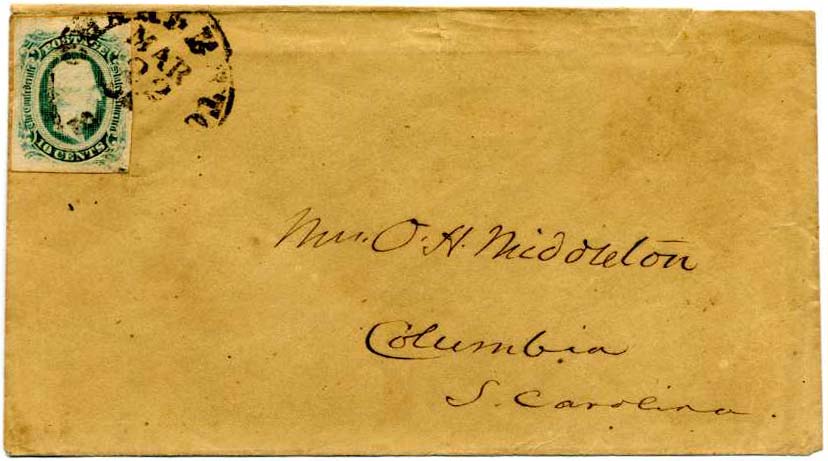 POSTAGE
The Confederate States of America
10 CENTS
MAR
22
Mrs. O. H. Middleton
Columbia
S. Carolina